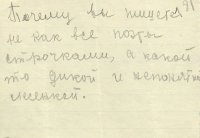 Почему вы пишете
не как все поэты
строчками, а какой
то дикой и непонятной
лесенкой.